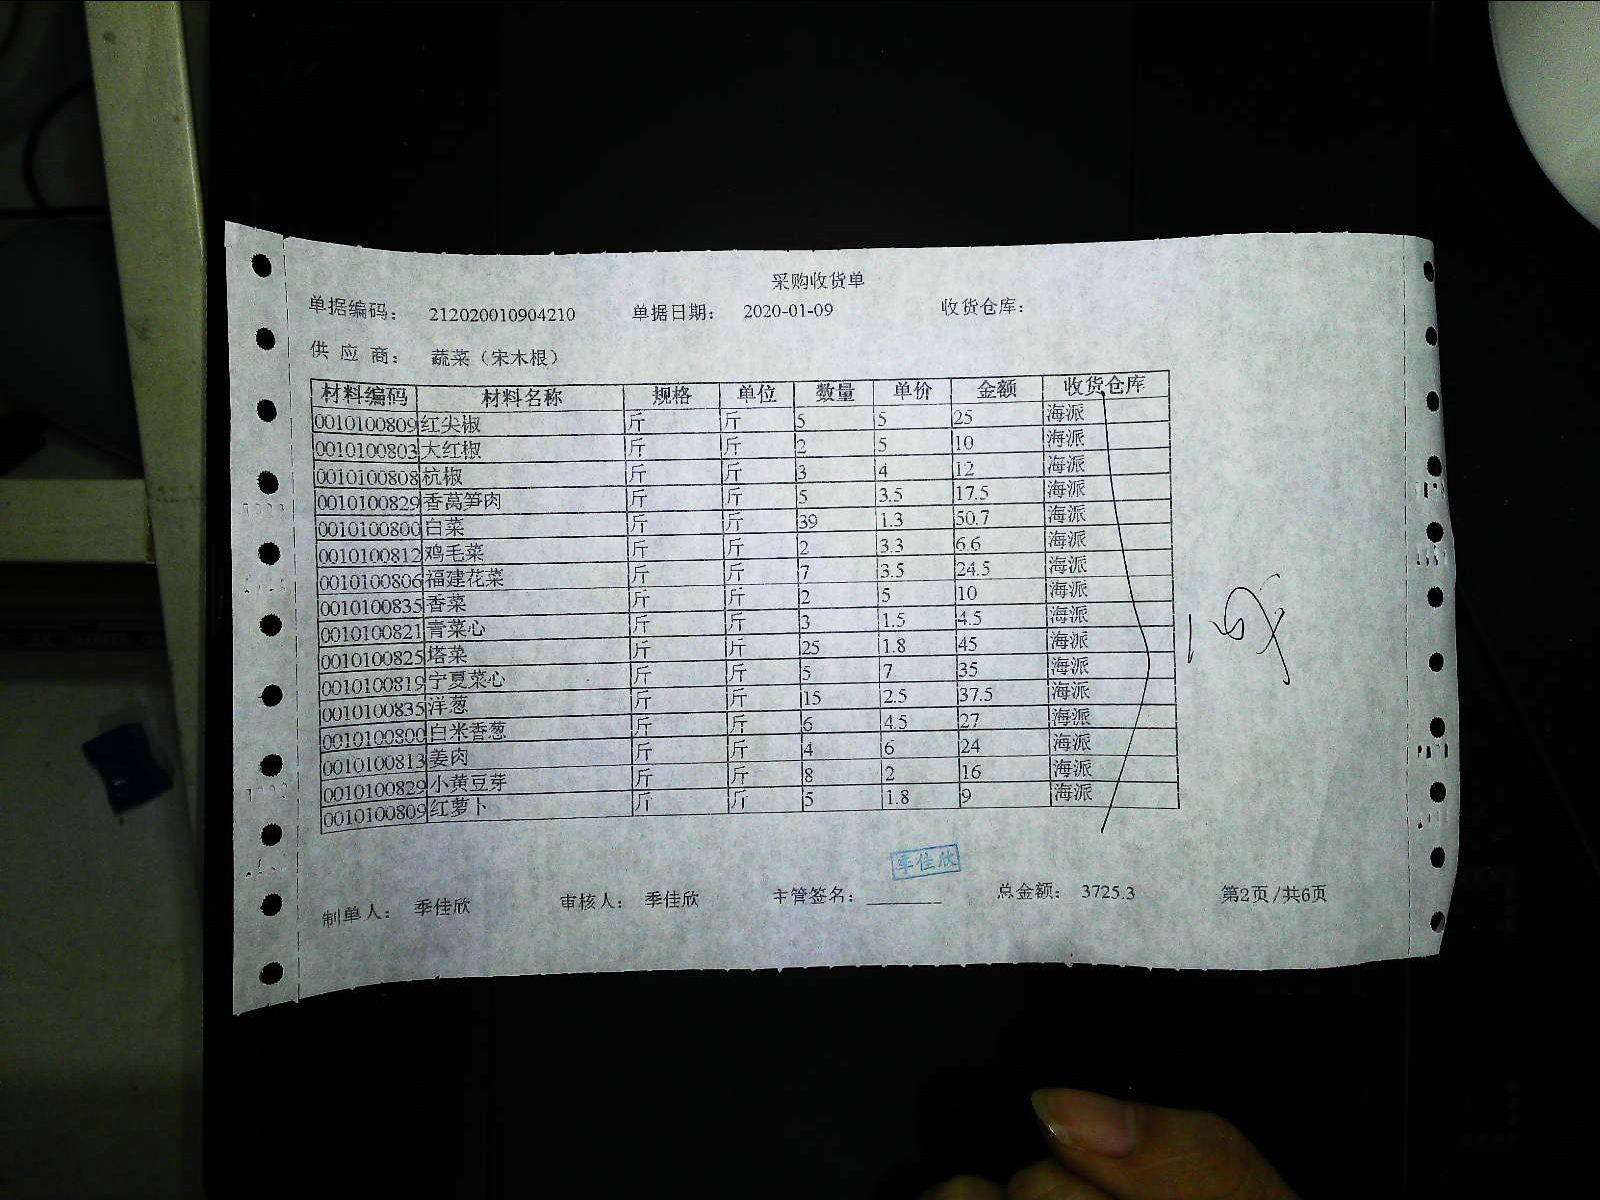 采购收货单
单据编码： 212020010904210 单据日期： 2020-01-09 收货仓库：
供 应 商： 蔬菜（宋木根）
材料编码 材料名称 规格 单位 数量 单价 金额 收货仓库
0010100809 红尖椒 斤 斤 5 5 25 海派
0010100803 大红椒 斤 斤 2 5 10 海派
0010100808 杭椒 斤 斤 3 4 12 海派
0010100829 香莴笋肉 斤 斤 5 3.5 17.5 海派
0010100800 白菜 斤 斤 39 1.3 50.7 海派
0010100812 鸡毛菜 斤 斤 2 3.3 6.6 海派
0010100806 福建花菜 斤 斤 7 3.5 24.5 海派
0010100835 香菜 斤 斤 2 5 10 海派
0010100821 青菜心 斤 斤 3 1.5 4.5 海派
0010100825 塔菜 斤 斤 25 1.8 45 海派
0010100819 宁夏菜心 斤 斤 5 7 35 海派
0010100835 洋葱 斤 斤 15 2.5 37.5 海派
0010100800 白米香葱 斤 斤 6 4.5 27 海派
0010100813 姜肉 斤 斤 4 6 24 海派
0010100829 小黄豆芽 斤 斤 8 2 16 海派
0010100809 红萝卜 斤 斤 5 1.8 9 海派
季佳欣
制单人： 季佳欣 审核人： 季佳欣 主管签名： 总金额： 3725.3 第2页/共6页